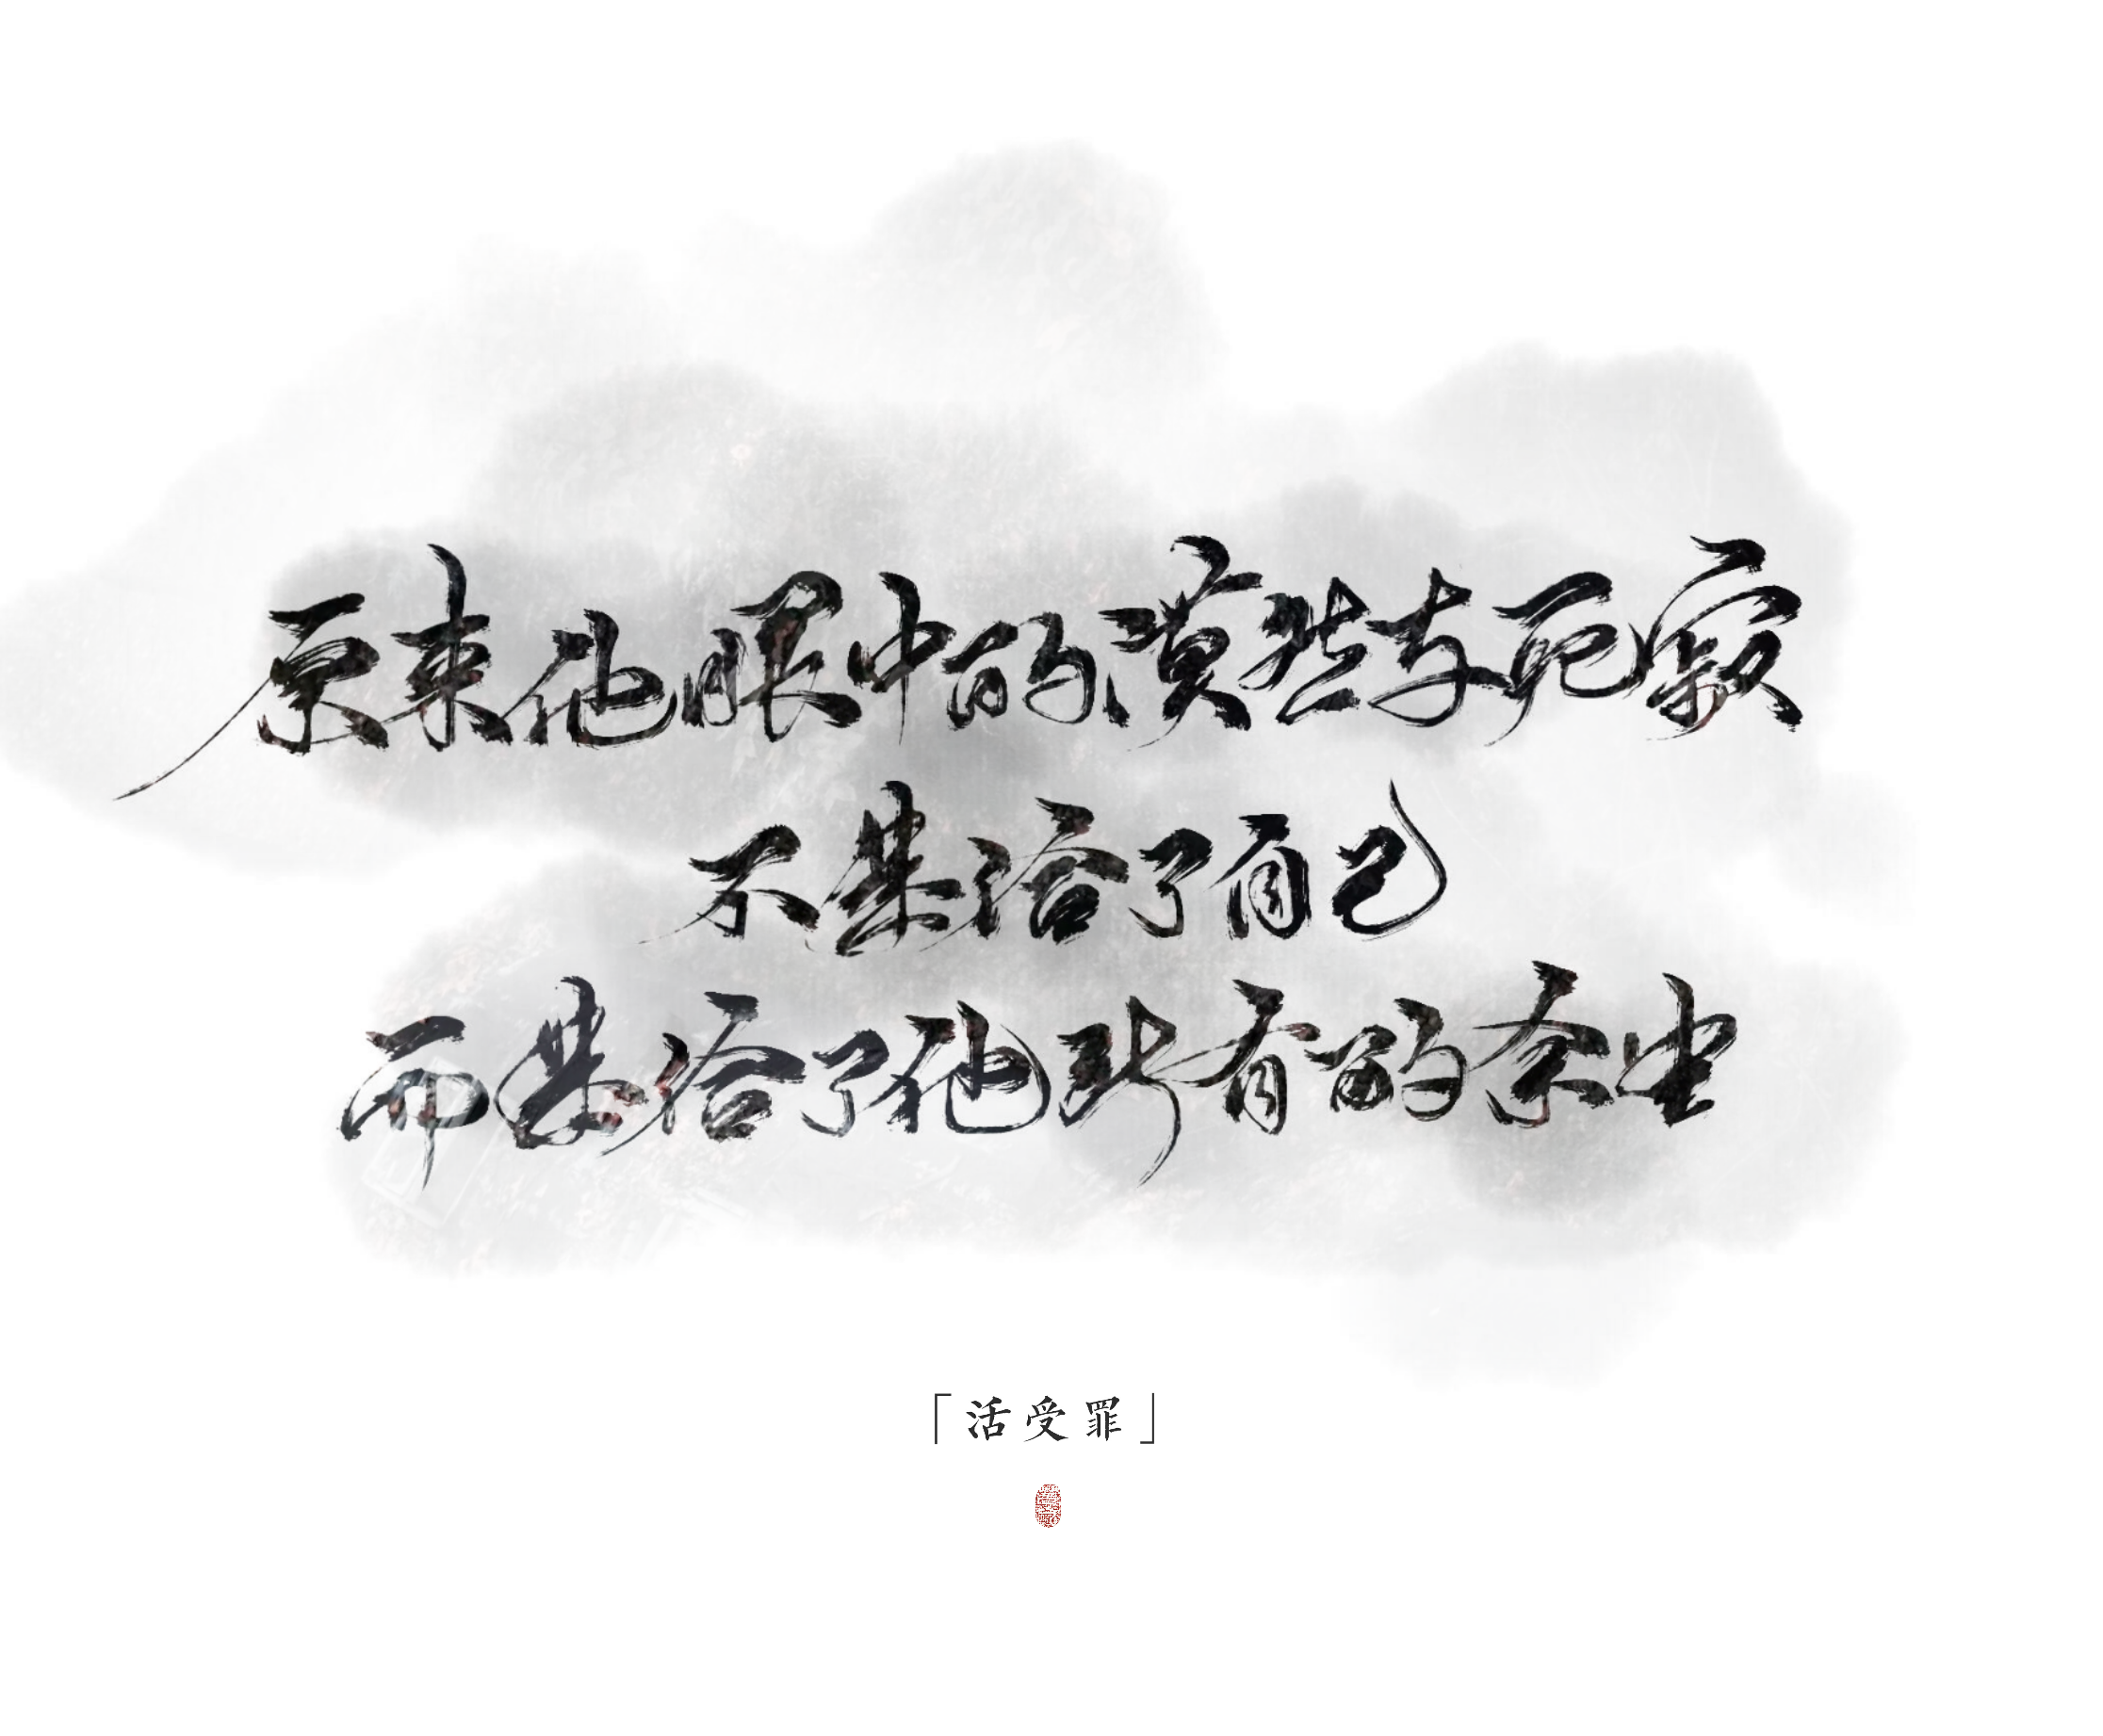 原来他眼中的漠然与死寂
不是给了自己
而是给了他所有的余生
「活受罪」